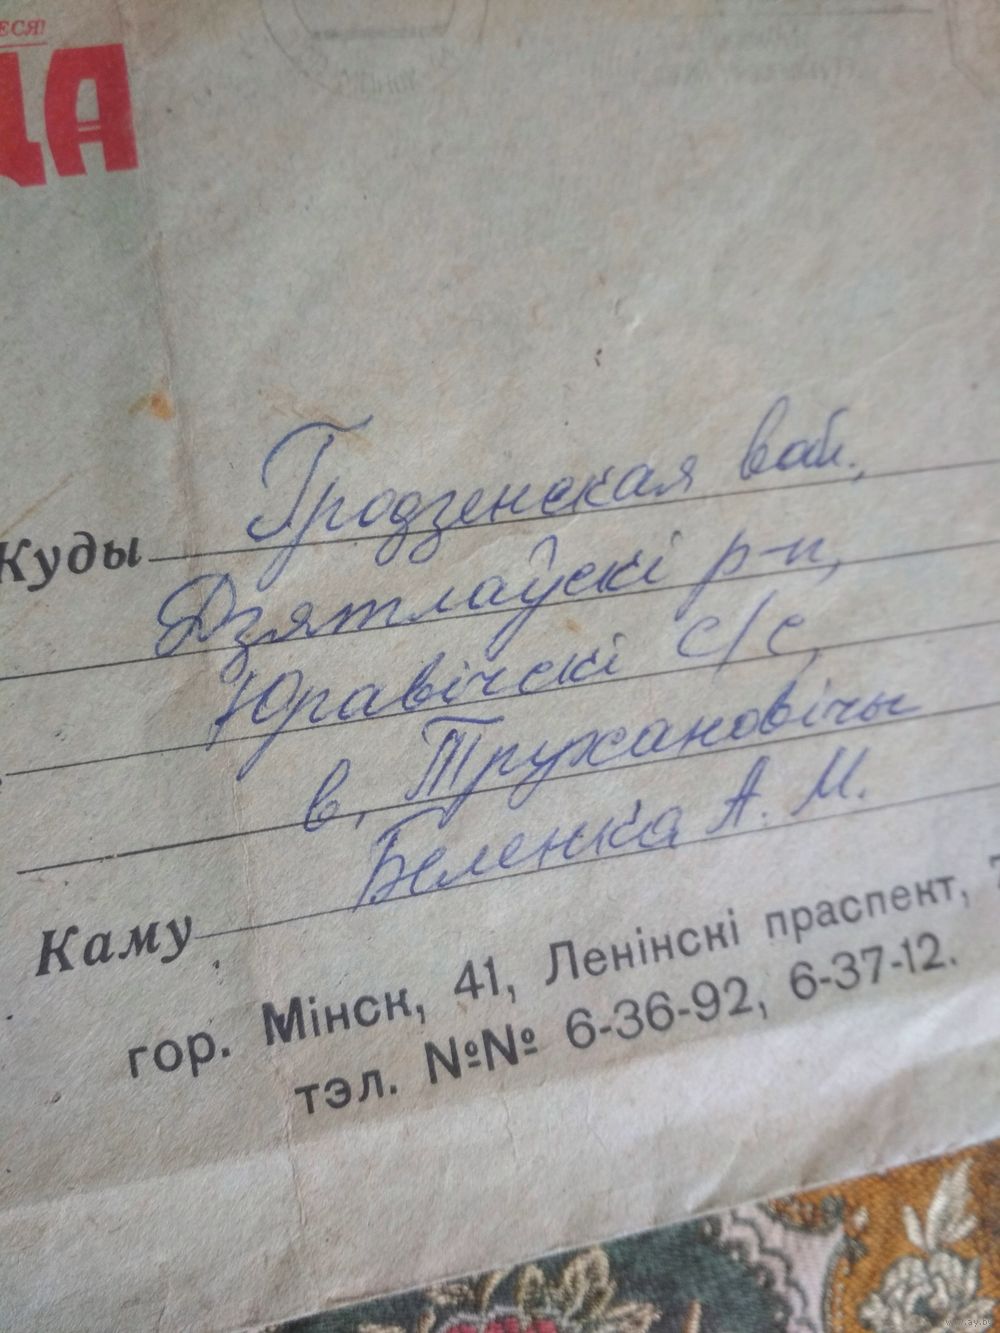 ЕСЯ!
ДА
Куды Гродзенская вобл.,
Дзятлаўскі р-н,
Юравічскі с/с,
в. Трухановічы
Каму Беленка А. М.
гор. Мінск, 41, Ленінскі праспект, 7
тэл. №№ 6-36-92, 6-37-12.